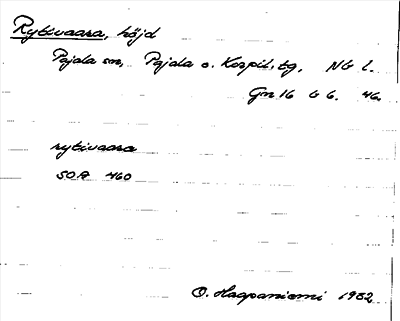 Rytivaara, höjd
Pajala sn, Pajala o. Korpil. tg. Nb l.
Gm 16 G 6. 46.
rytivaara
SOA 460
O. Haapaniemi 1982